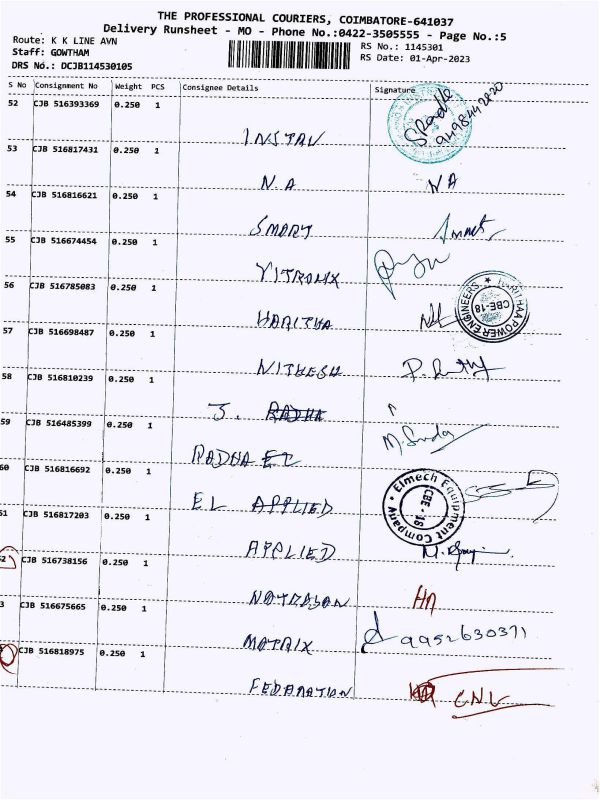 THE PROFESSIONAL COURIERS, COIMBATORE-641037
Delivery Runsheet - MO - Phone No.:0422-3505555 - Page No.:5
Route: K K LINE AVN
RS No.: 1145301
Staff: GOWTHAM
RS Date: 01-Apr-2023
DRS No.: DCJB114530105
S No Consignment No Weight PCS Consignee Details Signature
52 CJB 516393369 0.250 1
9498442820
INSTAV
53 CJB 516817431 0.250 1
N.A NA
54 CJB 516816621 0.250 1
SMART
55 CJB 516674454 0.250 1
VITRONIX
56 CJB 516785083 0.250 1
HARITHAA POWER ENGINEERS. CBE-18
HARITHA
57 CJB 516698487 0.250 1
NITHESH
58 CJB 516810239 0.250 1
J. RADHA
59 CJB 516485399 0.250 1
RADHA EL
60 CJB 516816692 0.250 1
Elmech Equipment Company CBE-18
EL APPLIED
61 CJB 516817203 0.250 1
APPLIED
62 CJB 516738156 0.250 1
HA
3 CJB 516675665 0.250 1
MATRIX 9952630371
CJB 516818975 0.250 1
FEDARATION CNL